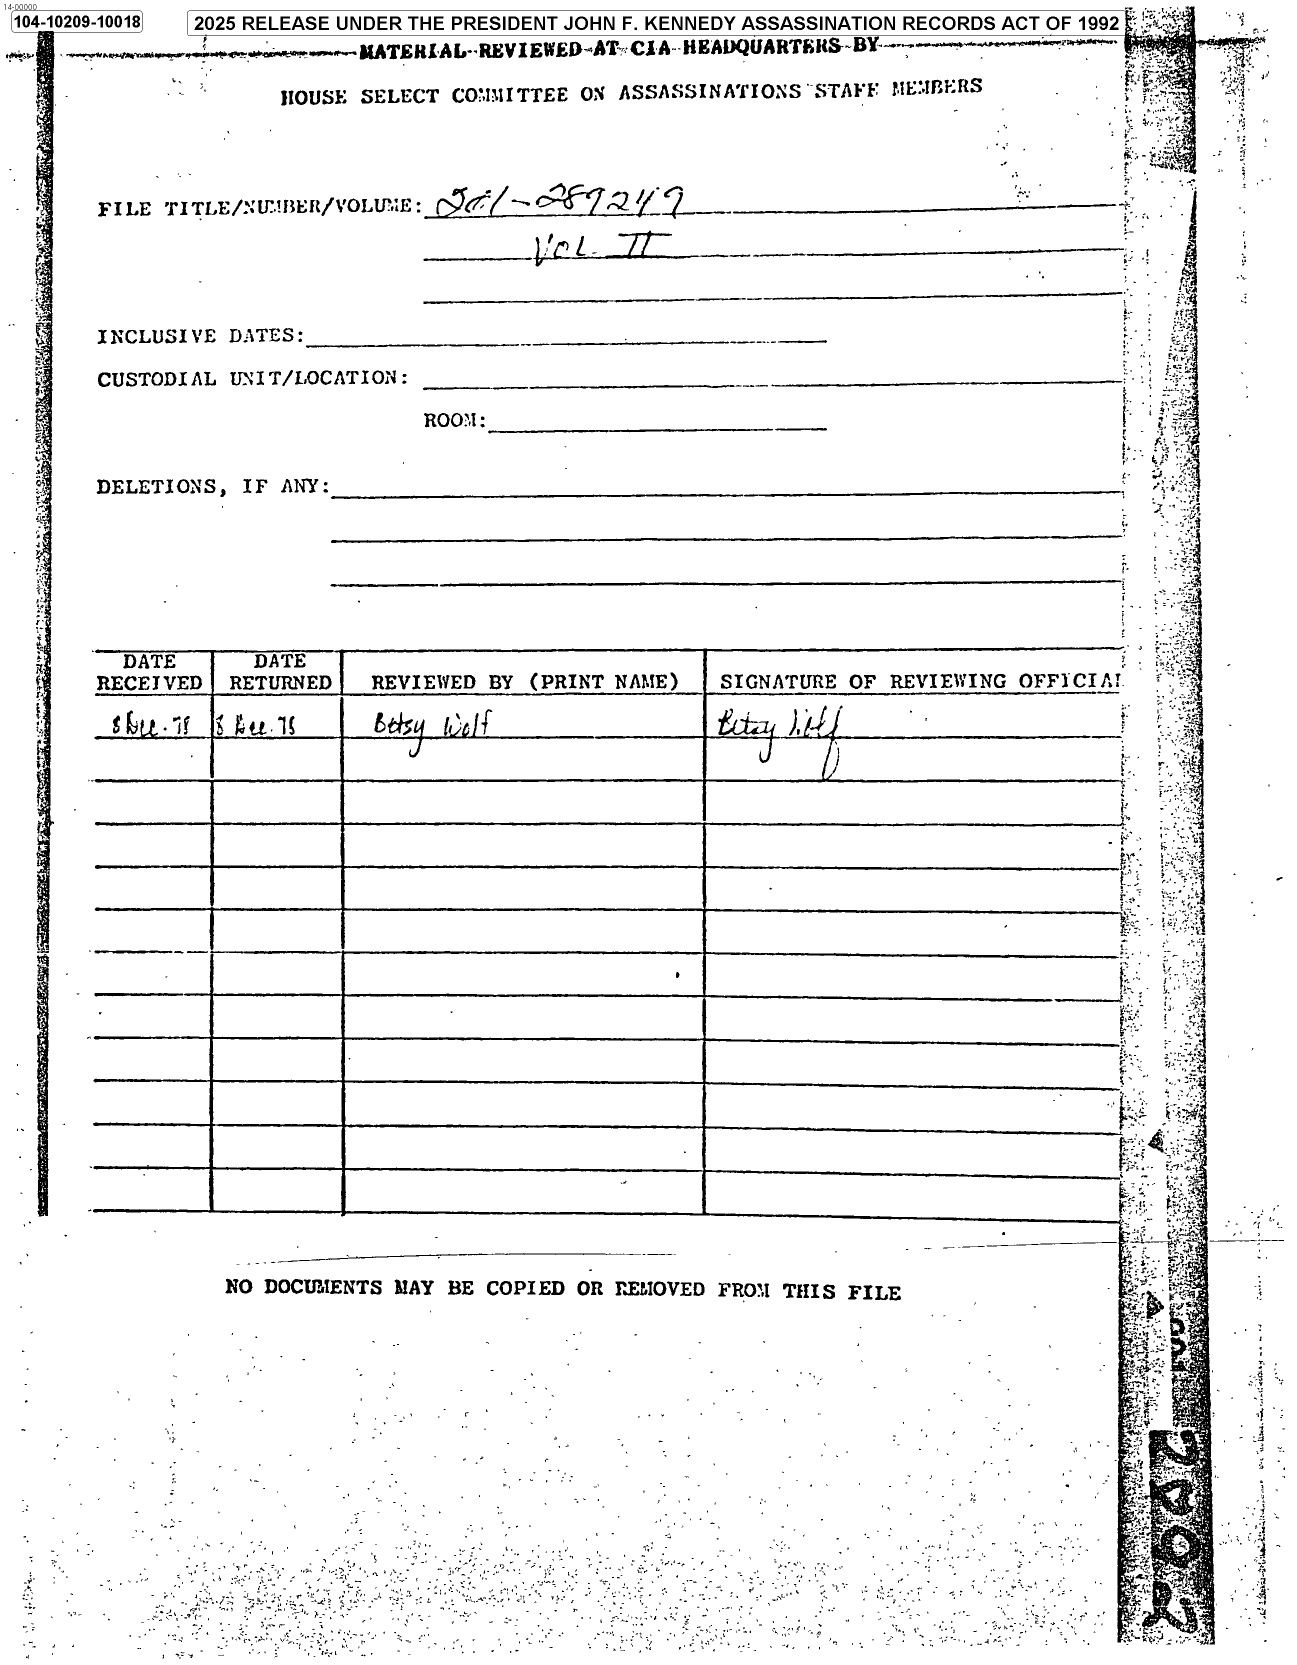 14-00000
104-10209-10018 2025 RELEASE UNDER THE PRESIDENT JOHN F. KENNEDY ASSASSINATION RECORDS ACT OF 1992
MATERIAL REVIEWED AT CIA HEADQUARTERS BY
HOUSE SELECT COMMITTEE ON ASSASSINATIONS STAFF MEMBERS
FILE TITLE/NUMBER/VOLUME: 201-289249
VOL. II
INCLUSIVE DATES:
CUSTODIAL UNIT/LOCATION:
ROOM:
DELETIONS, IF ANY:
DATE RECEIVED DATE RETURNED REVIEWED BY (PRINT NAME) SIGNATURE OF REVIEWING OFFICIAL
8 Dec. 78 8 Dec. 78 Betsy Wolf Betsy Wolf
NO DOCUMENTS MAY BE COPIED OR REMOVED FROM THIS FILE